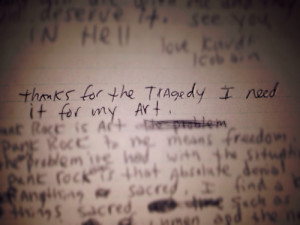 deserve it. see you
IN Hell
love, Kurdt
thanks for the Tragedy I need
it for my Art.
punk Rock is Art the problem
punk Rock to me means freedom.
the problem ive had with the situation
punk rock is that absolute denial
of anything sacred. I find a
things sacred such as
women and the